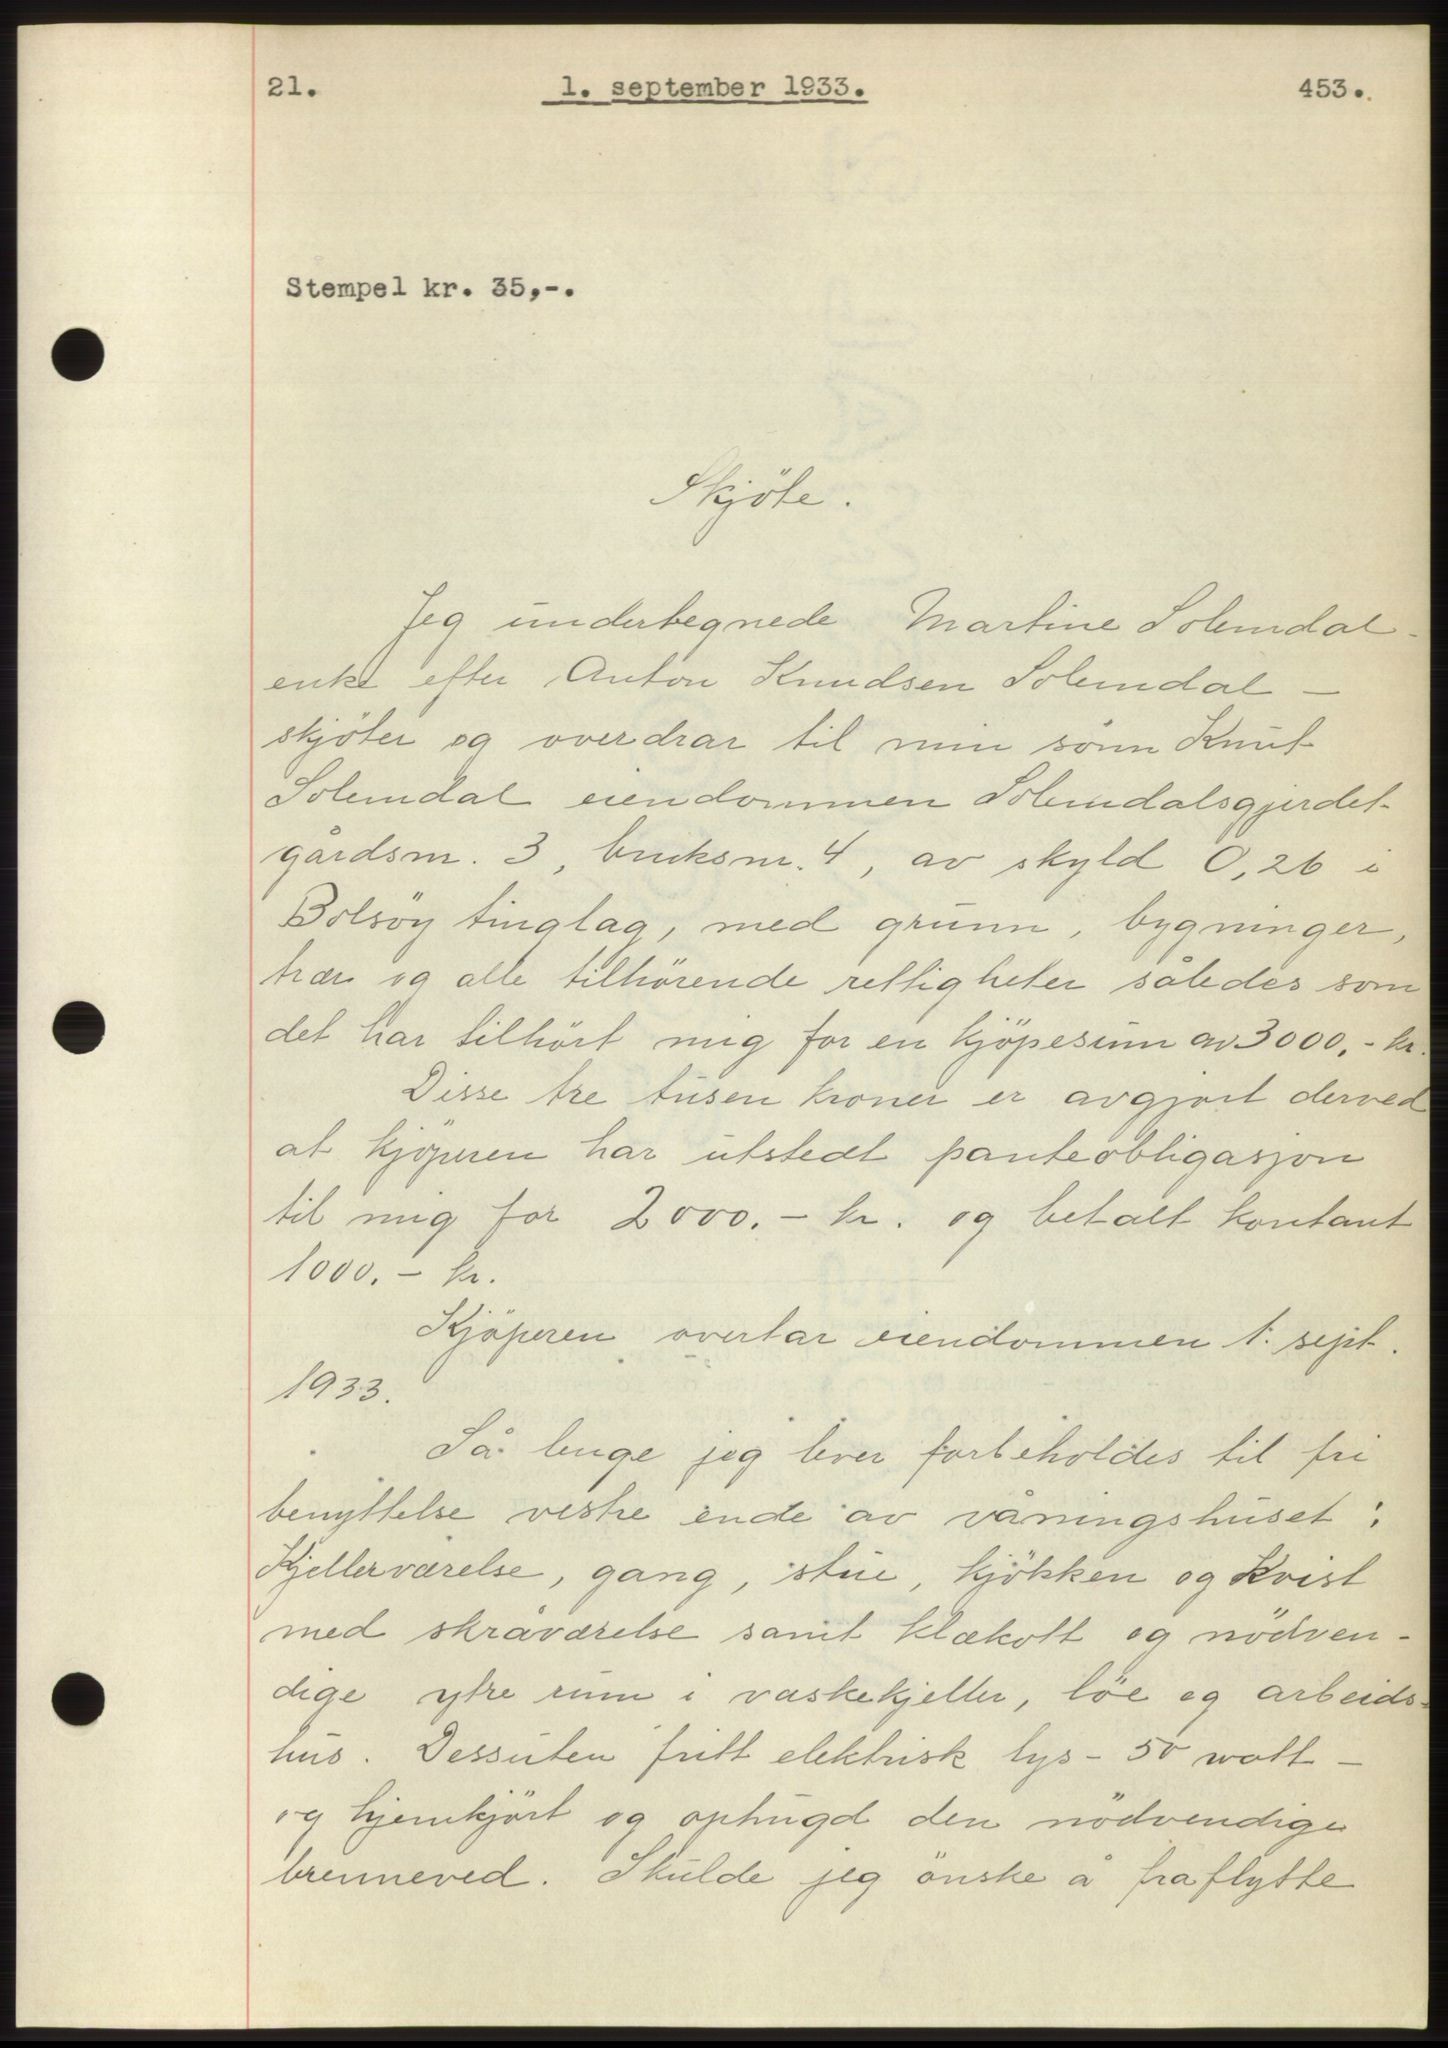 21. 1. september 1933. 453.
Stempel kr. 35,-.
Skjöte.
Jeg undertegnede Martine Solemdal -
enke efter Anton Knudsen Solemdal -
skjöter og overdrar til min sönn Knut
Solemdal eiendommen Solemdalsgjerdet
gårdsnr. 3, bruksnr. 4, av skyld 0,26 i
Bolsöy tinglag, med grunn, bygninger,
trær og alle tilhörende rettigheter således som
det har tilhört mig for en kjöpesum av 3000,- kr.
Disse tre tusen kroner er avgjort derved
at kjöperen har utstedt panteobligasjon
til mig for 2000.- kr. og betalt kontant
1000.- kr.
Kjöperen overtar eiendommen 1. sept.
1933.
Så lenge jeg lever forbeholdes til fri
benyttelse vestre ende av våningshuset:
Kjellerværelse, gang, stue, kjökken og Kvist
med skråværelse samt klækott og nödven-
dige ytre rum i vaskekjeller, löe og arbeids-
hus. Dessuten fritt elektrisk lys - 50 watt -
og hjemkjört og ophugd den nödvendige
brenneved. Skulde jeg önske å fraflytte